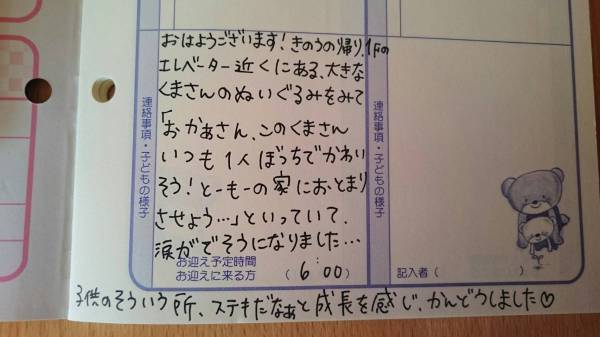 おはようございます!きのうの帰り、1Fの
エレベーター近くにある、大きな
くまさんのぬいぐるみをみて
「おかあさん、このくまさん
いつも1人ぼっちでかわい
そう!とーもーの家におとまり
させよう…」といっていて、
涙がでそうになりました…
連絡事項・子どもの様子
お迎え予定時間
お迎えに来る方 ( 6:00 )
連絡事項・子どもの様子
記入者 ( )
子供のそういう所、ステキだなぁと成長を感じ、かんどうしました♡